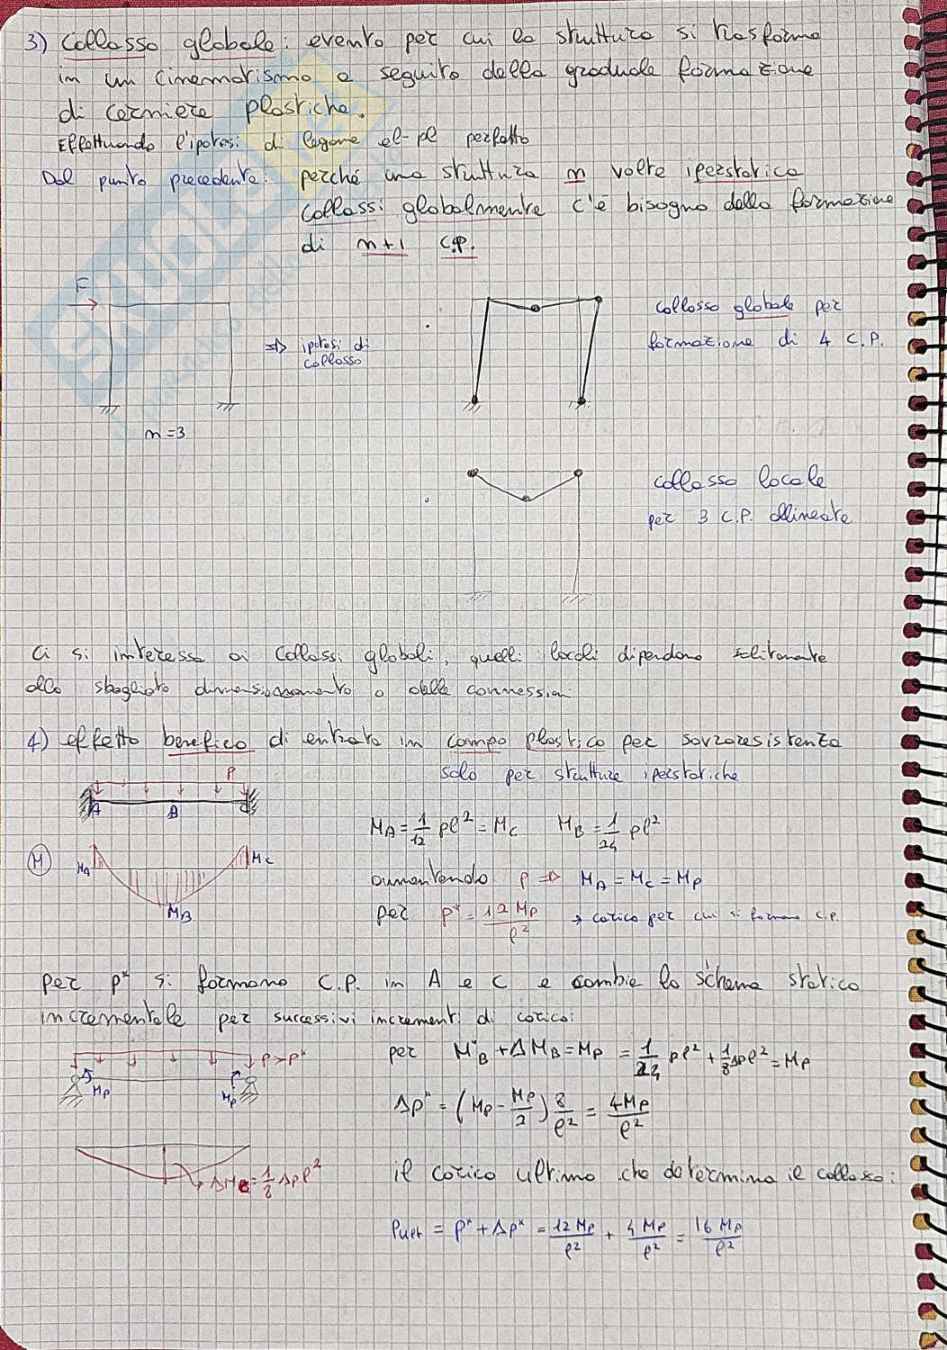 3) Collasso globale: evento per cui la struttura si trasforma
in un cinematismo a seguito della graduale formazione
di cerniere plastiche.
Effettuando l'ipotesi di legame el-pl perfetto
Dal punto precedente: perché una struttura n volte iperstatica
collassi globalmente c'è bisogno della formazione
di n+1 C.P.
F
=> ipotesi di
collasso
n=3
collasso globale per
formazione di 4 C.P.
collasso locale
per 3 C.P. allineate
Ci si interessa ai collassi globali, quelli locali dipendono solitamente
allo sbagliato dimensionamento o delle connessioni
4) effetto benefico di entrata in campo plastico per sovraresistenza
solo per strutture iperstatiche
P
A B C
M_A = 1/12 pl² = M_C M_B = 1/24 pl²
M M_A M_C
M_B
aumentando p => M_A = M_C = M_P
per p* = 12 M_P / l² → carico per cui si formano C.P.
per p* si formano C.P. in A e C e cambia lo schema statico
incrementale per successivi incrementi di carico:
P>P*
M_P M_P
per M*_B + ΔM_B = M_P = 1/24 pl² + 1/8 Δpl² = M_P
Δp* = (M_P - M_P/2) 8/l² = 4M_P/l²
ΔM_C = 1/8 Δpl²
il carico ultimo che determina il collasso:
P_ULT = P* + Δp* = 12 M_P/l² + 4 M_P/l² = 16 M_P/l²